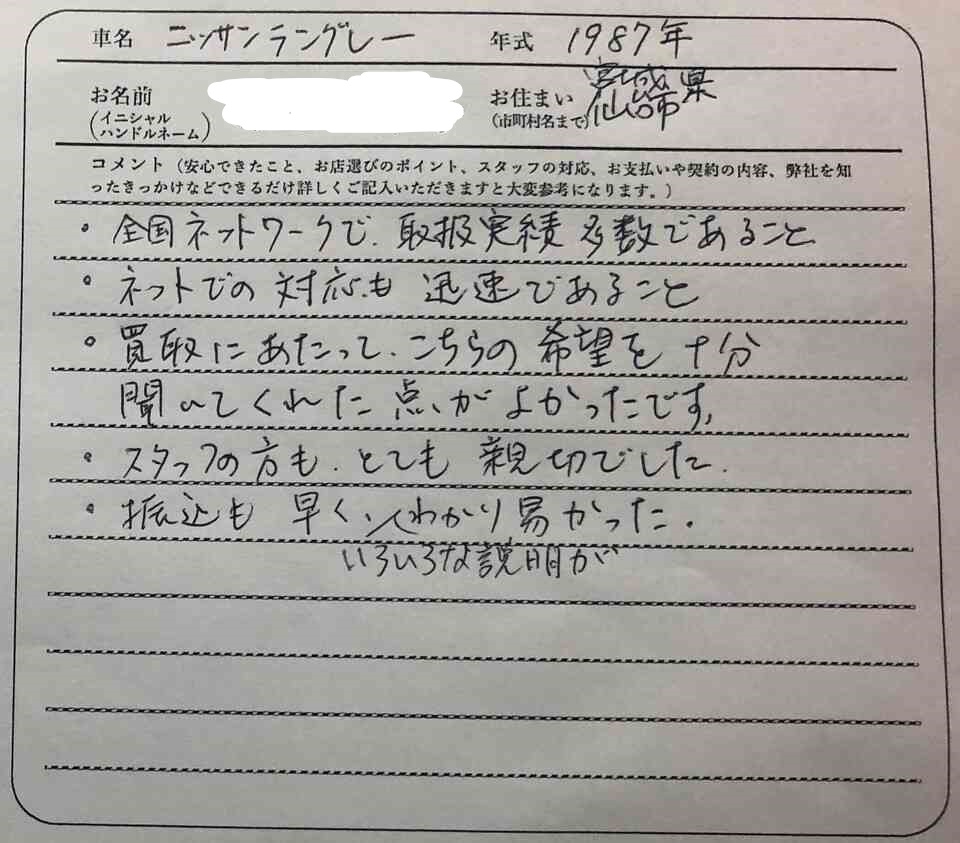 車名 ニッサンラングレー 年式 1987年
お名前 (イニシャル ハンドルネーム) お住まい (市町村名まで) 宮城県 仙台市
コメント（安心できたこと、お店選びのポイント、スタッフの対応、お支払いや契約の内容、弊社を知
ったきっかけなどできるだけ詳しくご記入いただきますと大変参考になります。）
・全国ネットワークで、取扱実績多数であること
・ネットでの対応も迅速であること
・買取にあたって、こちらの希望を十分
聞いてくれた点がよかったです。
・スタッフの方も、とても親切でした。
・振込も早く、わかり易かった。
いろいろな説明が